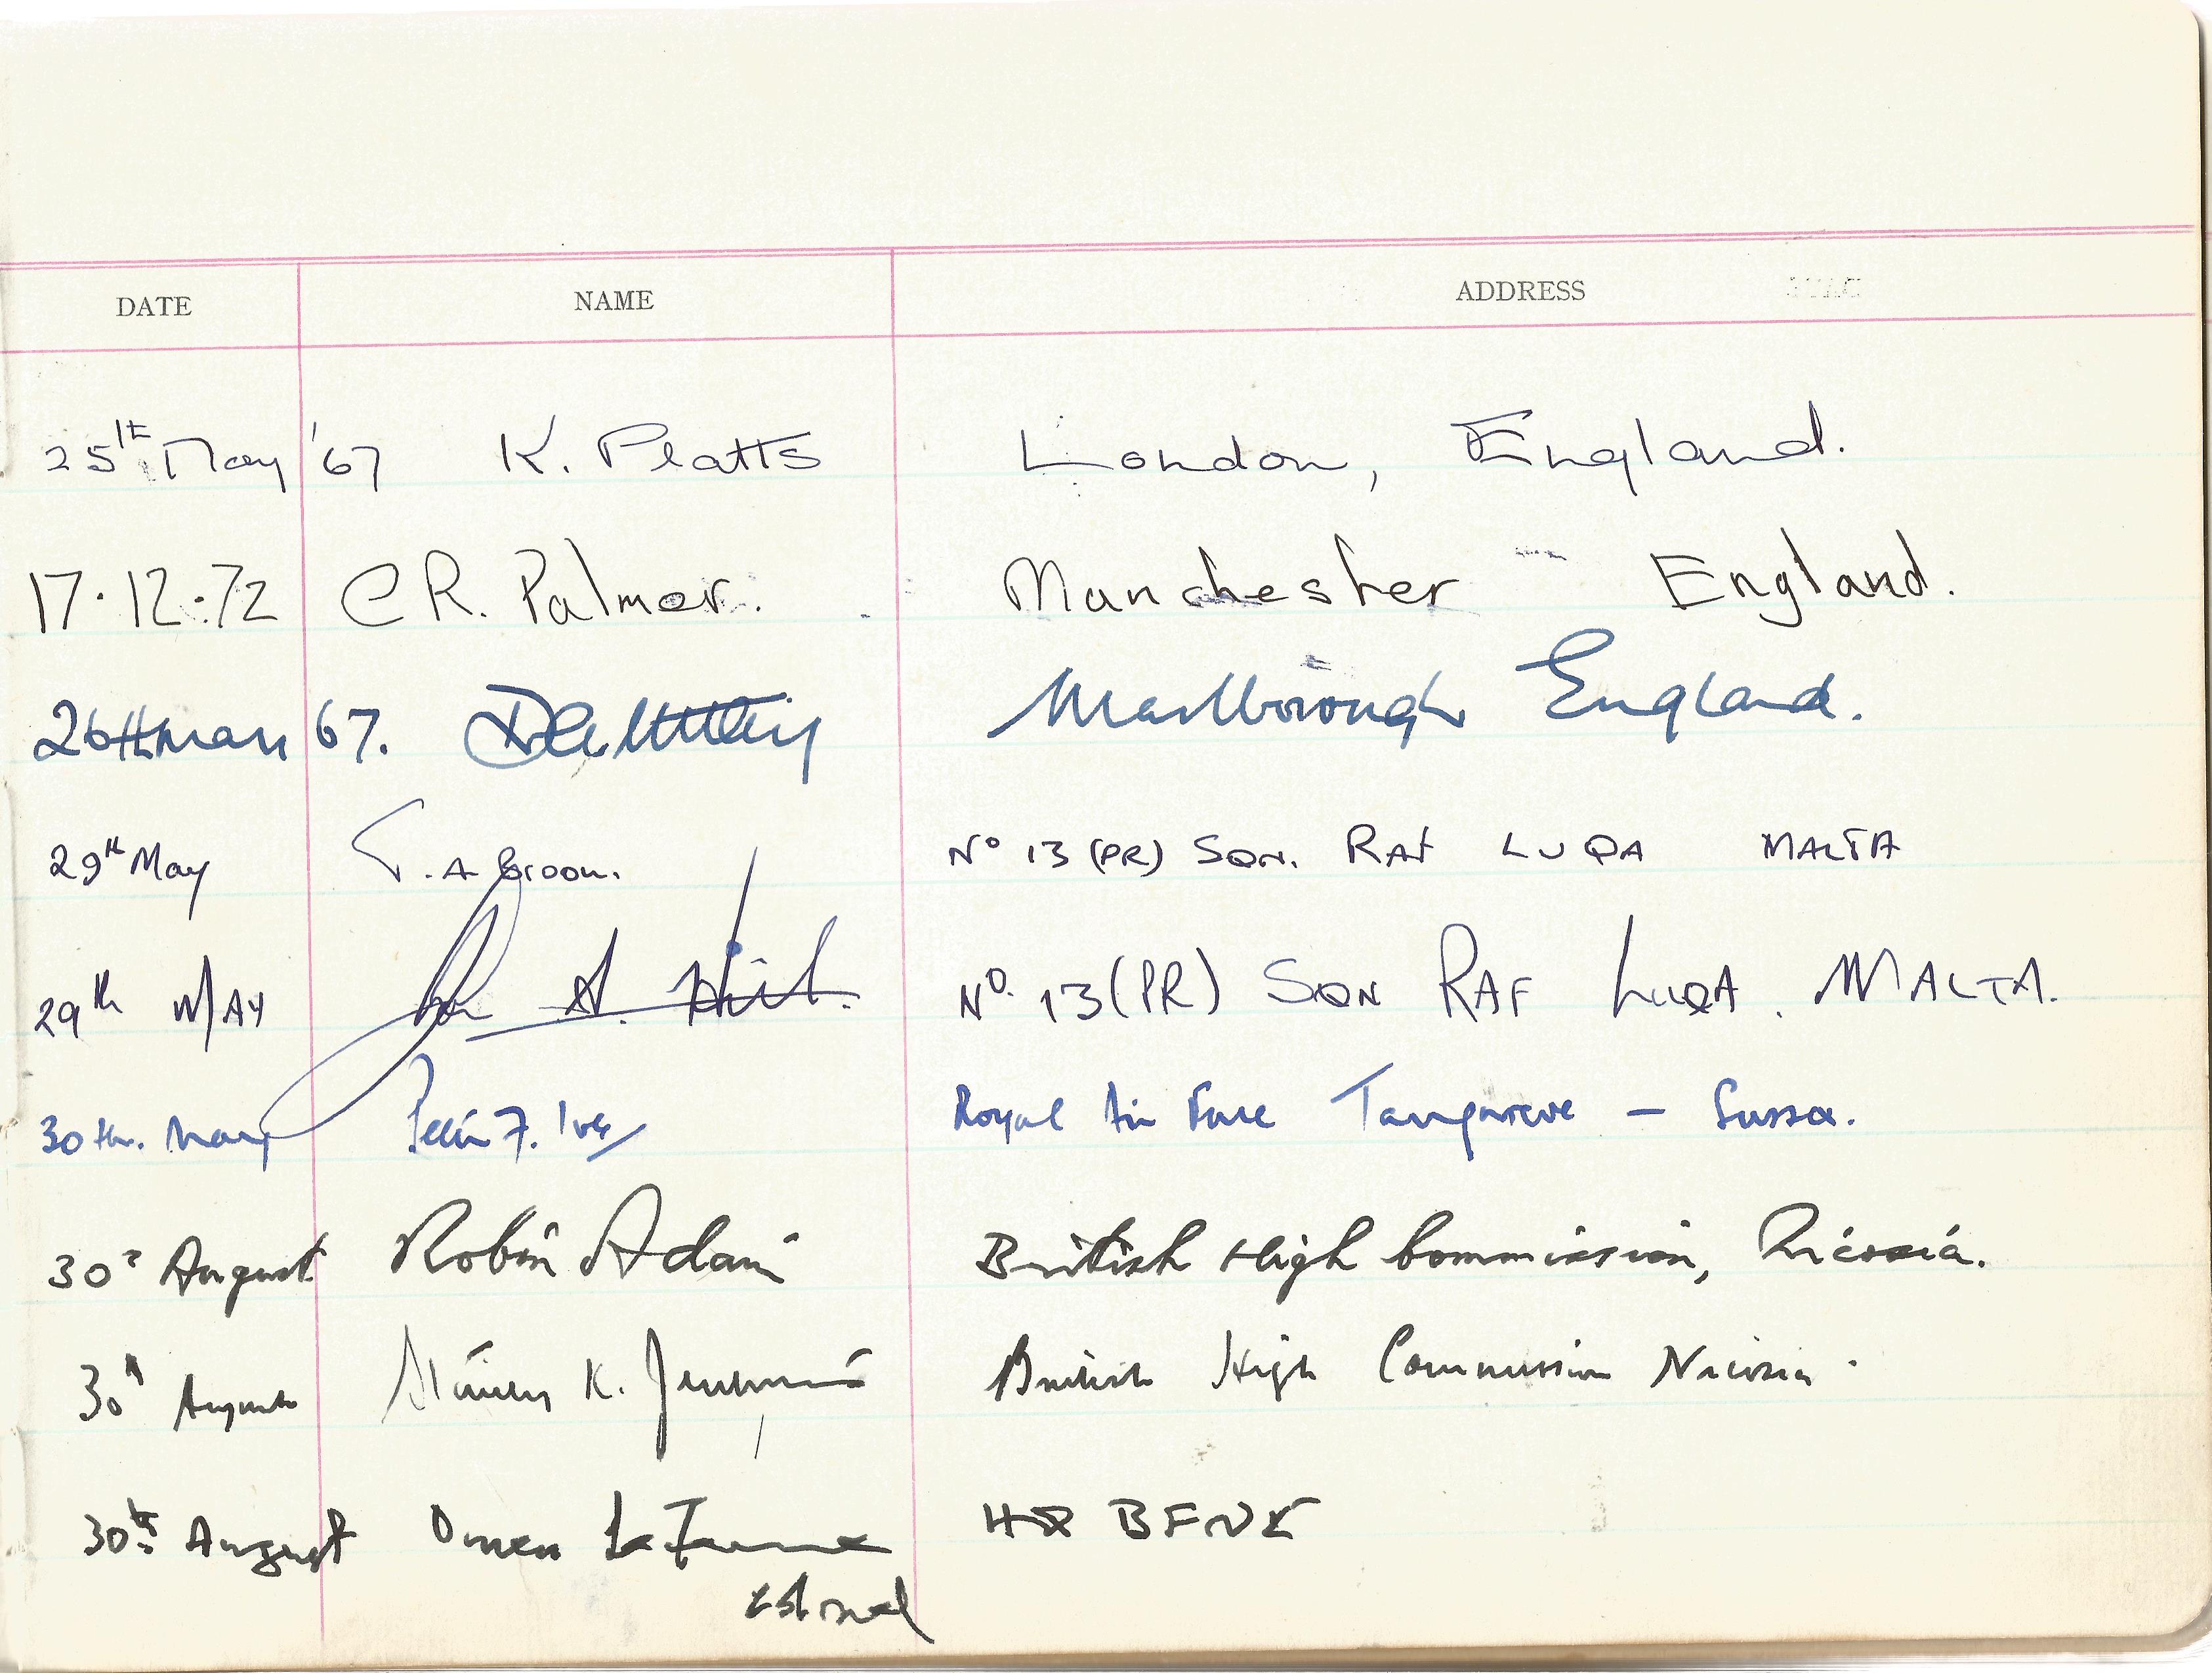 DATE NAME ADDRESS
25th May '67 K. Platts London, England.
17.12.72 C R. Palmer. Manchester England.
26th May 67. Marlborough England.
29th May T. A Broom. No 13 (PR) SQN. RAF LUQA MALTA
29th MAY A. No. 13 (PR) SQN RAF LUQA. MALTA.
30th. May Peter F. Ives Royal Air Force Tangmere – Sussex.
30th August Robin Adair British High Commission, Nicosia.
30th August K. British High Commission Nicosia.
30th August HQ BFNE